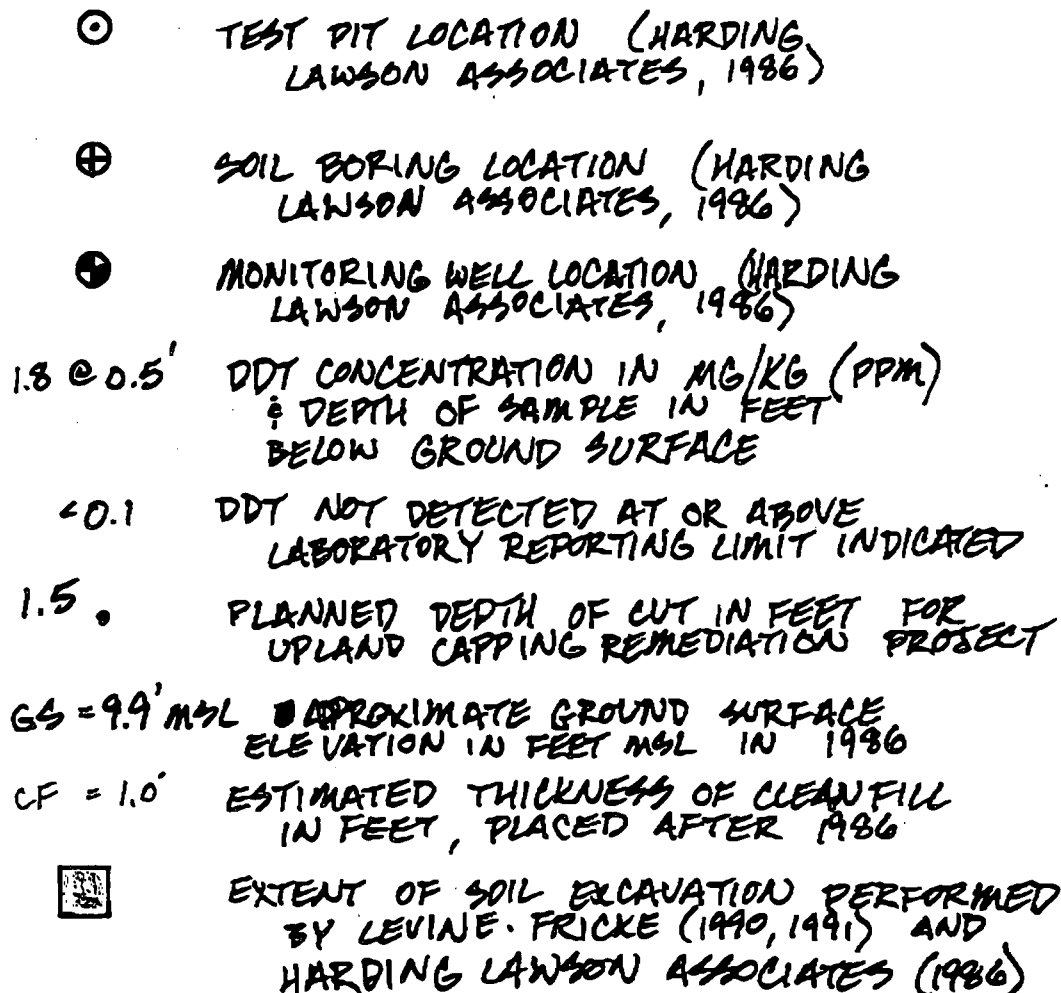 TEST PIT LOCATION (HARDING
LAWSON ASSOCIATES, 1986)
SOIL BORING LOCATION (HARDING
LAWSON ASSOCIATES, 1986)
MONITORING WELL LOCATION (HARDING
LAWSON ASSOCIATES, 1986)
1.8 @ 0.5' DDT CONCENTRATION IN MG/KG (PPM)
& DEPTH OF SAMPLE IN FEET
BELOW GROUND SURFACE
<0.1 DDT NOT DETECTED AT OR ABOVE
LABORATORY REPORTING LIMIT INDICATED
1.5 . PLANNED DEPTH OF CUT IN FEET FOR
UPLAND CAPPING REMEDIATION PROJECT
GS = 9.9' MSL APROXIMATE GROUND SURFACE
ELEVATION IN FEET MSL IN 1986
CF = 1.0' ESTIMATED THICKNESS OF CLEAN FILL
IN FEET, PLACED AFTER 1986
EXTENT OF SOIL EXCAVATION PERFORMED
BY LEVINE·FRICKE (1990, 1991) AND
HARDING LAWSON ASSOCIATES (1986)